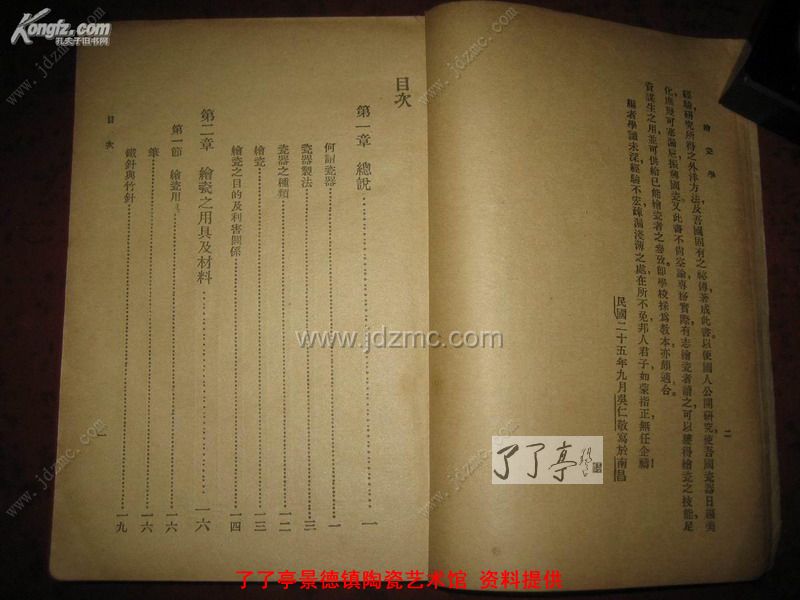 繪瓷學
二
經驗研究所得之外洋方法,及吾國固有之祕傳著成此書以便國人公開研究,使吾國瓷器日趨美
化,庶幾可塞漏巵,振興國瓷,又此書不尚空論,專極實際,有志繪瓷者讀之,可以應得繪瓷之技能,足
資謀生之用,並可供給已能繪瓷者之參攷,即學校採爲教本,亦頗適合。
編者學識未深,經驗不宏,疎漏淺薄之處在所不免,邦人君子,如蒙指正,無任企禱!
民國二十五年九月吳仁敬寫於南昌
目次
第一章 總說 一
何謂瓷器 一
瓷器製法 三
瓷器之種類 一二
繪瓷 一三
繪瓷之目的及利害關係 一四
第二章 繪瓷之用具及材料 一六
第一節 繪瓷用 一六
筆 一六
鐵針與竹針 一九
目次
一
Kongfz.com
孔夫子旧书网
www.jdzmc.com
了了亭
了了亭景德镇陶瓷艺术馆 资料提供